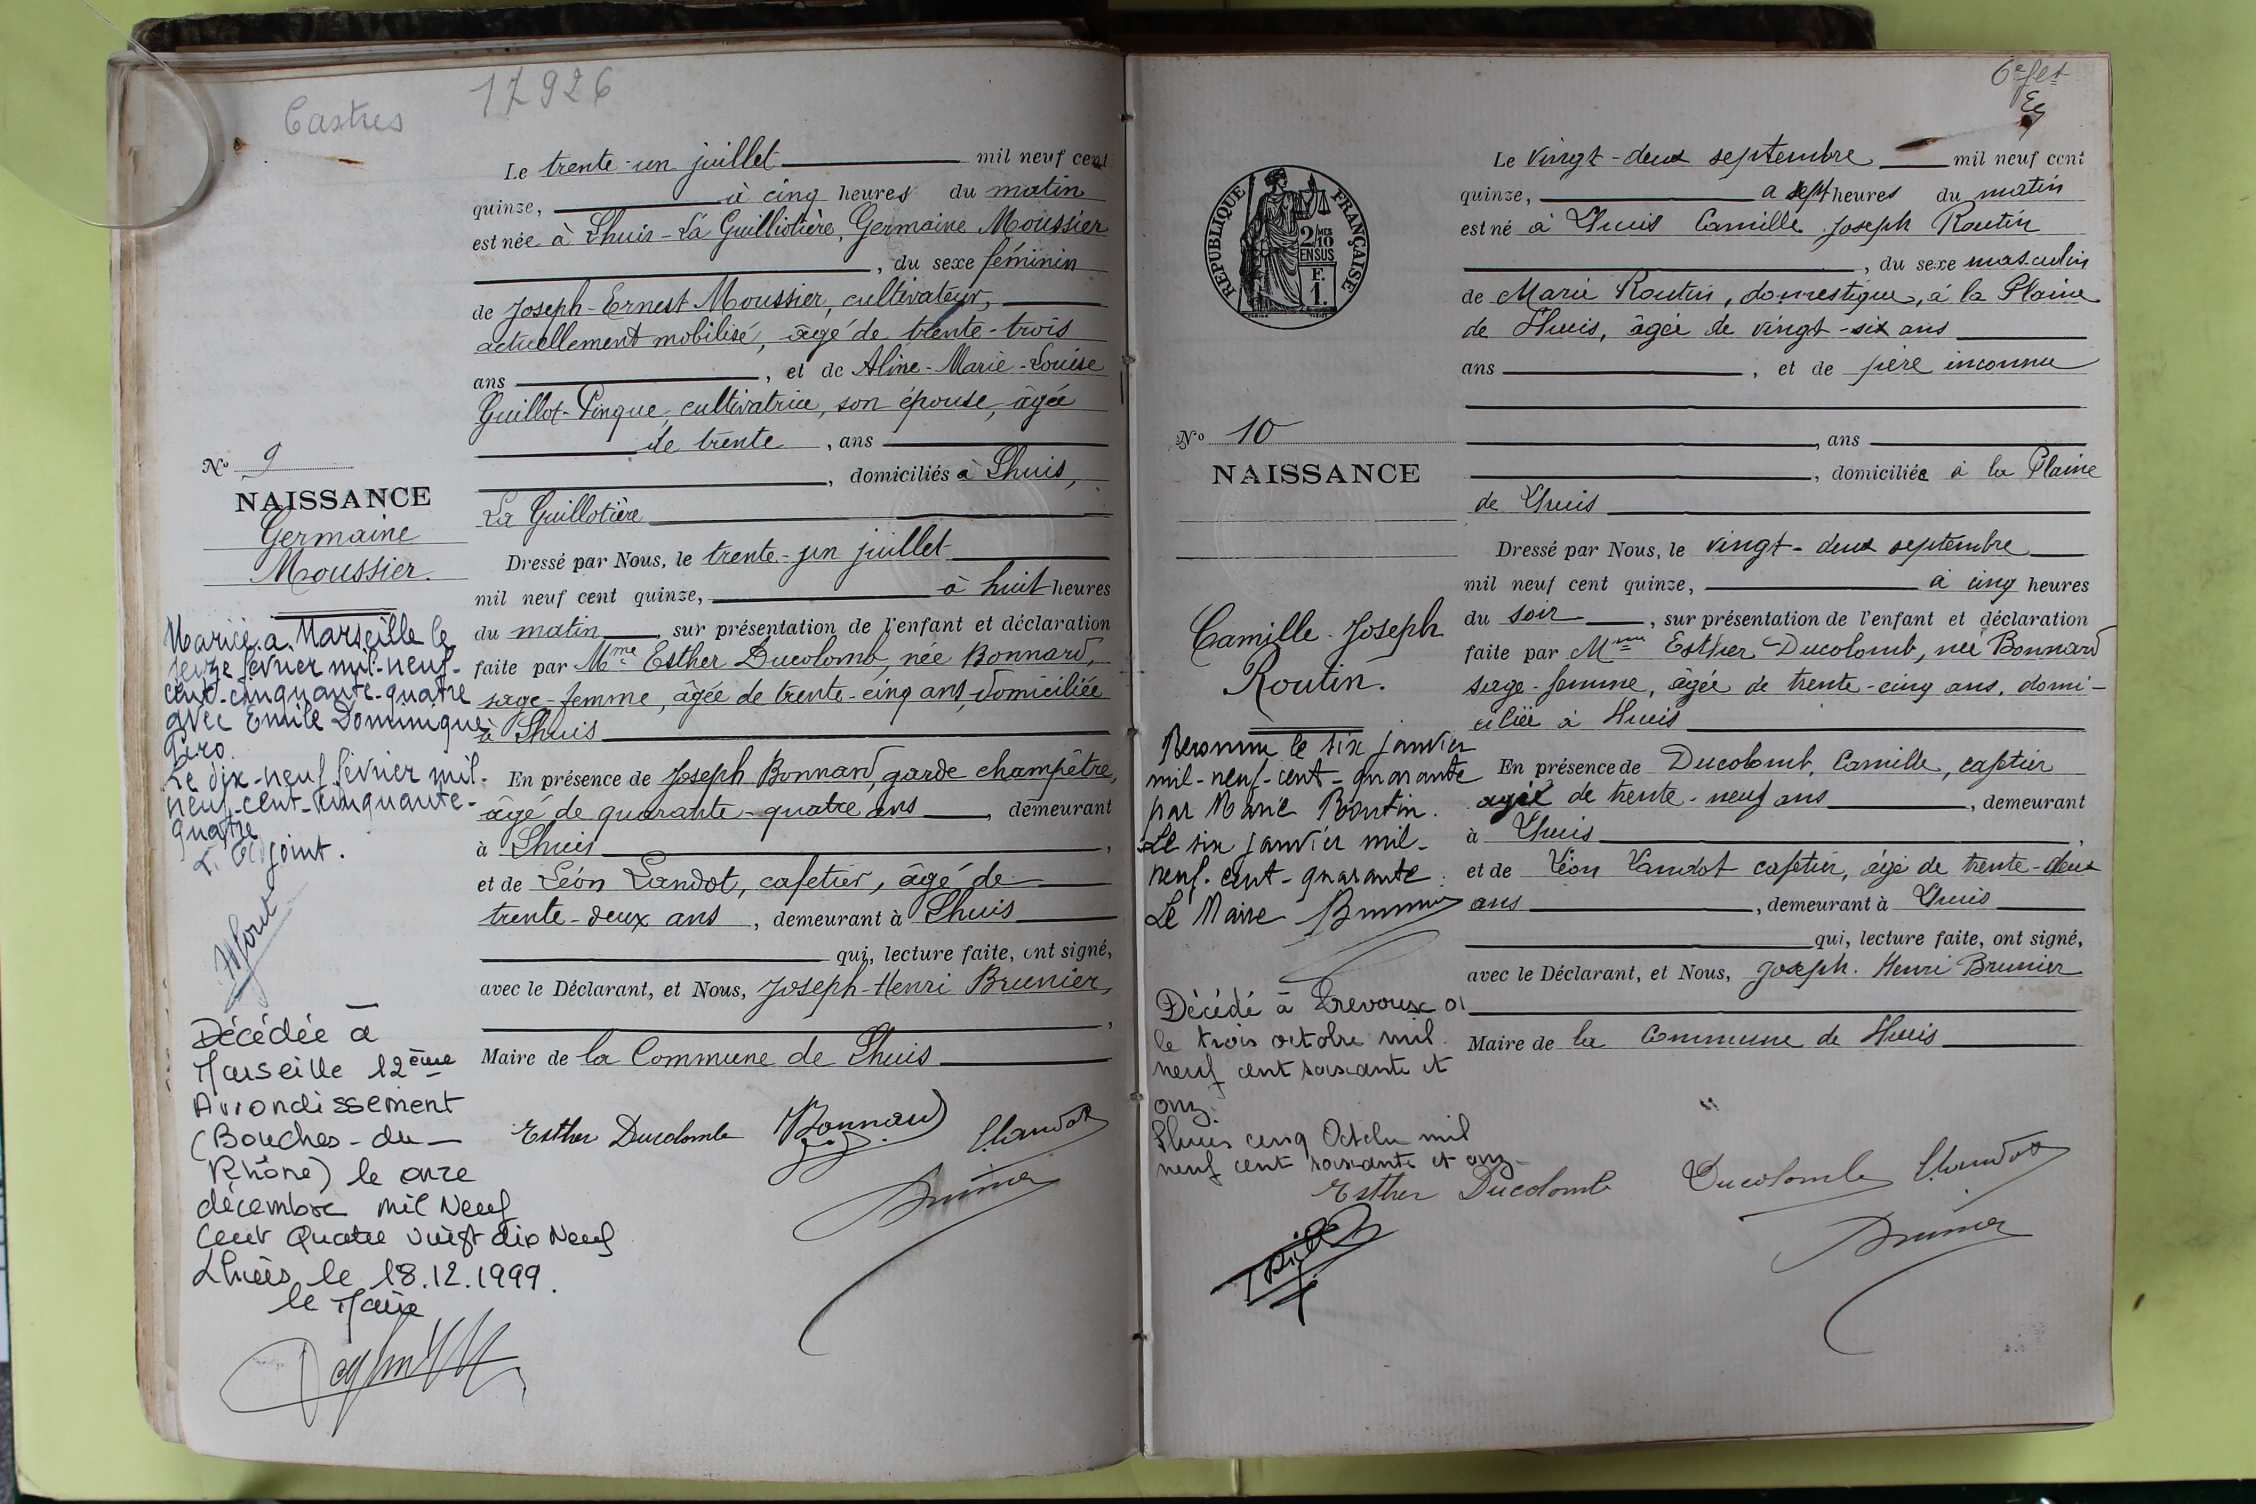 Castres
17926
Le trente-un juillet mil neuf cent
quinze, à cinq heures du matin
est née à Lhuis - La Guilliotière, Germaine Moussier
, du sexe féminin
de Joseph-Ernest Moussier, cultivateur,
actuellement mobilisé, âgé de trente-trois
ans , et de Aline-Marie-Louise
Guillot-Pingue, cultivatrice, son épouse, âgée
de trente , ans
, domiciliés à Lhuis,
La Guillotière
Dressé par Nous, le trente-un juillet
mil neuf cent quinze, à huit heures
du matin , sur présentation de l'enfant et déclaration
faite par Mme Esther Ducolomb, née Bonnard,
sage-femme, âgée de trente-cinq ans, domiciliée
à Lhuis
En présence de Joseph Bonnard, garde champêtre,
âgé de quarante-quatre ans , demeurant
à Lhuis ,
et de Léon Landot, cafetier, âgé de
trente-deux ans , demeurant à Lhuis
qui, lecture faite, ont signé,
avec le Déclarant, et Nous, Joseph-Henri Brunier,
,
Maire de la Commune de Lhuis
Esther Ducolomb Bonnard L. Landot
Brunier
No 9
NAISSANCE
Germaine
Moussier.
Mariée à Marseille le
seize février mil-neuf-
cent-cinquante-quatre
avec Emile Dominique
Piro.
Le dix-neuf février mil-
neuf-cent-cinquante-
quatre
L'Adjoint.
Décédée à
Marseille 12ème
Arrondissement
(Bouches-du-
Rhône) le onze
décembre mil Neuf
Cent Quatre vingt dix Neuf
Lhuis le 18.12.1999.
le Maire
6e fet
RÉPUBLIQUE FRANÇAISE
2/10 MES
EN SUS
F.
1.
Le vingt-deux septembre mil neuf cent
quinze, à sept heures du matin
est né à Lhuis Camille Joseph Routin
, du sexe masculin
de Marie Routin, domestique, à la Plaine
de Lhuis, âgée de vingt-six ans
ans , et de père inconnu
, ans
, domiciliée à la Plaine
de Lhuis
Dressé par Nous, le vingt-deux septembre
mil neuf cent quinze, à cinq heures
du soir , sur présentation de l'enfant et déclaration
faite par Mme Esther Ducolomb, née Bonnard
sage-femme, âgée de trente-cinq ans, domi-
ciliée à Lhuis
En présence de Ducolomb, Camille, cafetier
âgé de trente-neuf ans , demeurant
à Lhuis ,
et de Léon Landot cafetier, âgé de trente-deux
ans , demeurant à Lhuis
qui, lecture faite, ont signé,
avec le Déclarant, et Nous, Joseph. Henri Brunier
Maire de la Commune de Lhuis
Esther Ducolomb Ducolomb L. Landot
Brunier
No 10
NAISSANCE
Camille Joseph
Routin.
Reconnu le six janvier
mil-neuf-cent-quarante
par Marie Routin.
Le six janvier mil-
neuf-cent-quarante.
Le Maire
Décédé à Trevoux 01
le trois octobre mil
neuf cent soixante et
onz.
Lhuis cinq Octobre mil
neuf cent soixante et onz-